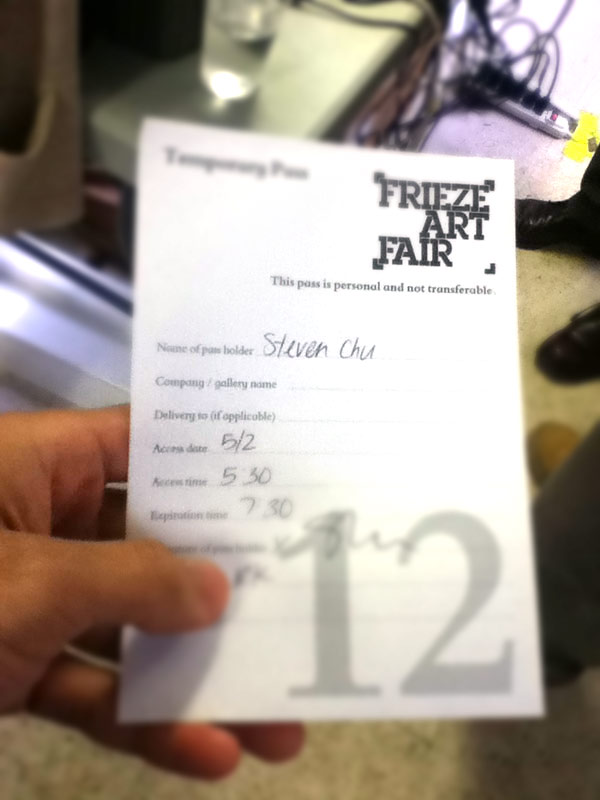 Temporary Pass
FRIEZE
ART
FAIR
This pass is personal and not transferable.
Name of pass holder Steven Chu
Company / gallery name
Delivery to (if applicable)
Access date 5/2
Access time 5 30
Expiration time 7 30
of pass holder
12